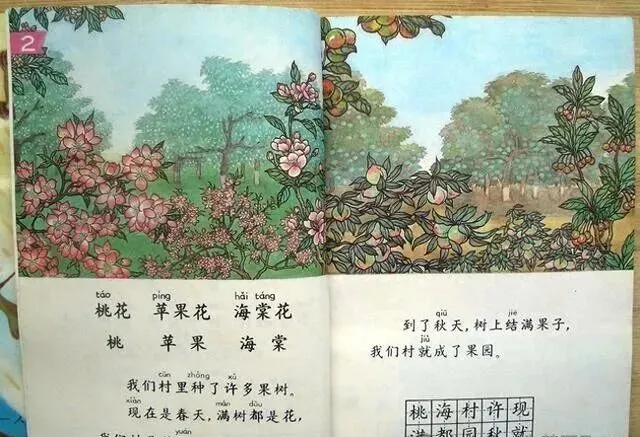 2
táo píng hǎi táng
桃花 苹果花 海棠花
桃 苹果 海棠
cūn zhǒng xǔ
我们村里种了许多果树。
xiàn mǎn dōu
现在是春天,满树都是花,
yuán
qiū jiē
到了秋天,树上结满果子,
jiù
我们村就成了果园。
桃海村许现
满都园秋就